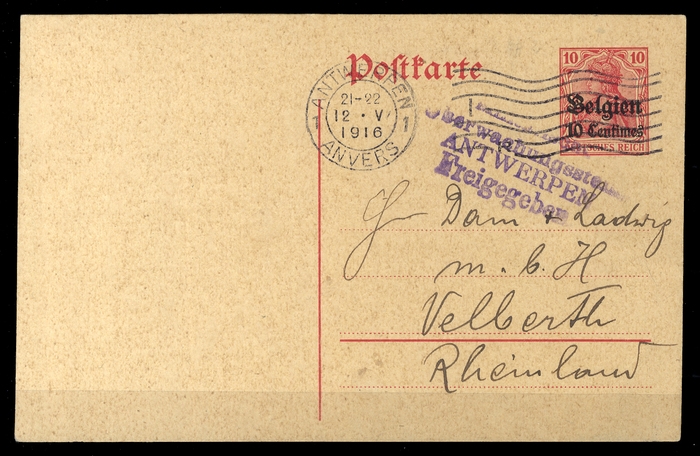 Postkarte
10 10
Belgien
10 Centimes
DEUTSCHES REICH
ANTWERPEN
21-22
12 • V
1916
1 1
ANVERS
Überwachungsstelle
ANTWERPEN
Freigegeben
Dam & Ladwig
m. b. H
Velberth
Rheinland